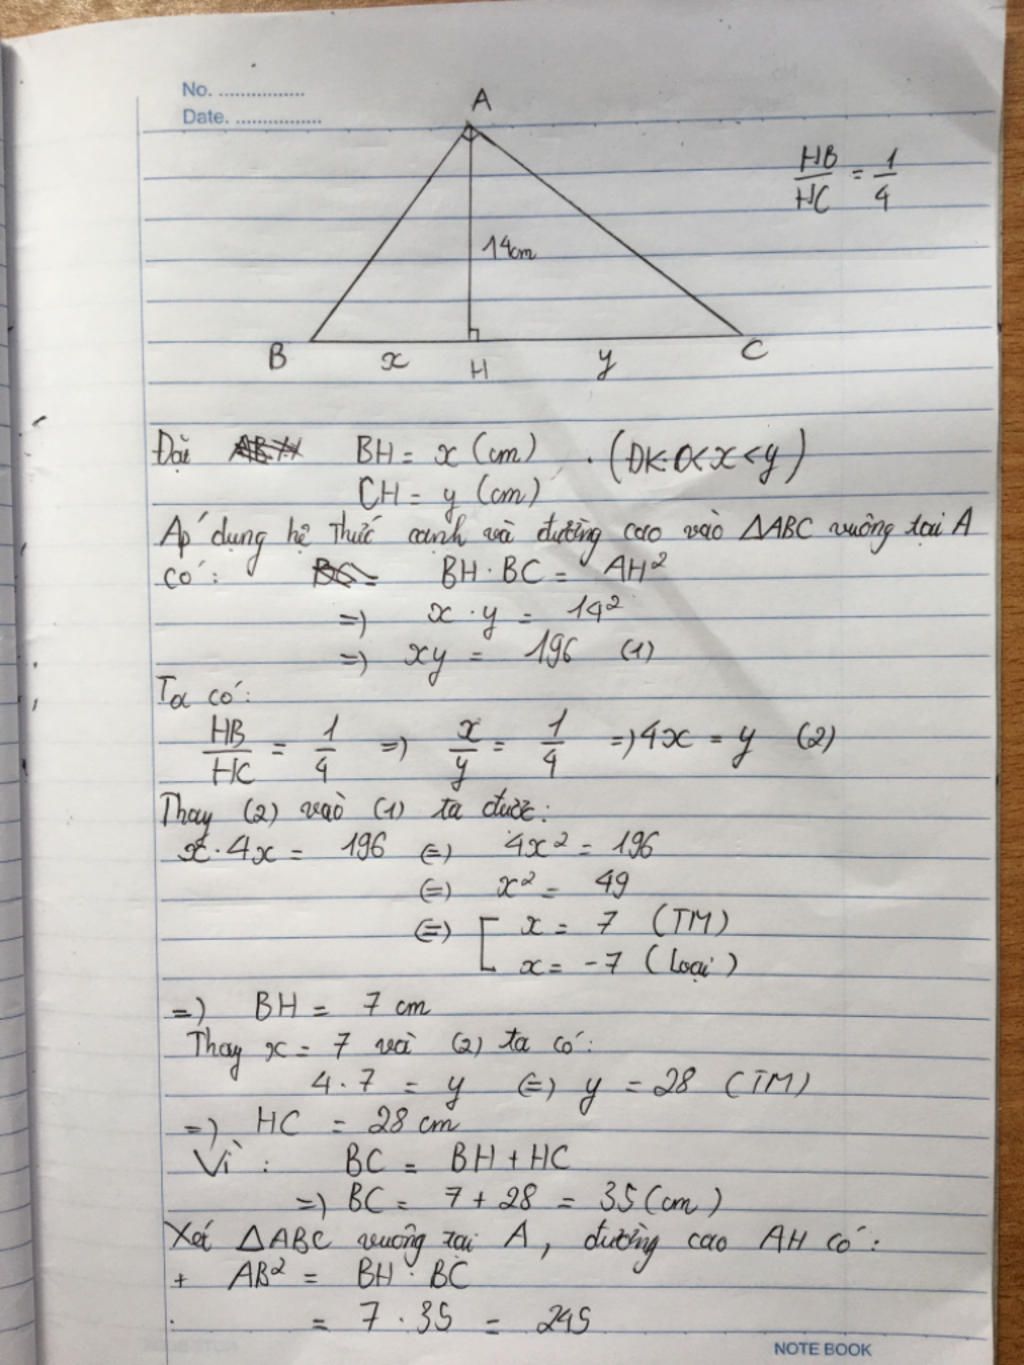 No. ................
Date. ................
A
HB/HC = 1/4
14cm
B x H y C
Đặt BH = x (cm) . (ĐK: 0 < x < y)
CH = y (cm)
Áp dụng hệ thức cạnh và đường cao vào ΔABC vuông tại A
có: BH . BC = AH²
=) x . y = 14²
=) xy = 196 (1)
Ta có:
HB/HC = 1/4 =) x/y = 1/4 =) 4x = y (2)
Thay (2) vào (1) ta được:
x . 4x = 196 (=) 4x² = 196
(=) x² = 49
(=) [ x = 7 (TM)
x = -7 (loại)
=) BH = 7 cm
Thay x = 7 và (2) ta có:
4 . 7 = y (=) y = 28 (TM)
=) HC = 28 cm
Vì : BC = BH + HC
=) BC = 7 + 28 = 35 (cm)
Xét ΔABC vuông tại A, đường cao AH có:
+ AB² = BH . BC
= 7 . 35 = 245
NOTE BOOK